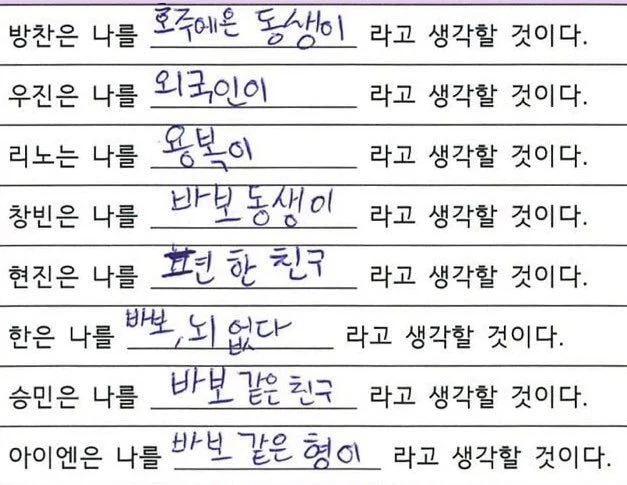 방찬은 나를 호주에온 동생이 라고 생각할 것이다.
우진은 나를 외국인이 라고 생각할 것이다.
리노는 나를 용복이 라고 생각할 것이다.
창빈은 나를 바보동생이 라고 생각할 것이다.
현진은 나를 편한 친구 라고 생각할 것이다.
한은 나를 바보, 뇌 없다 라고 생각할 것이다.
승민은 나를 바보 같은 친구 라고 생각할 것이다.
아이엔은 나를 바보 같은 형이 라고 생각할 것이다.